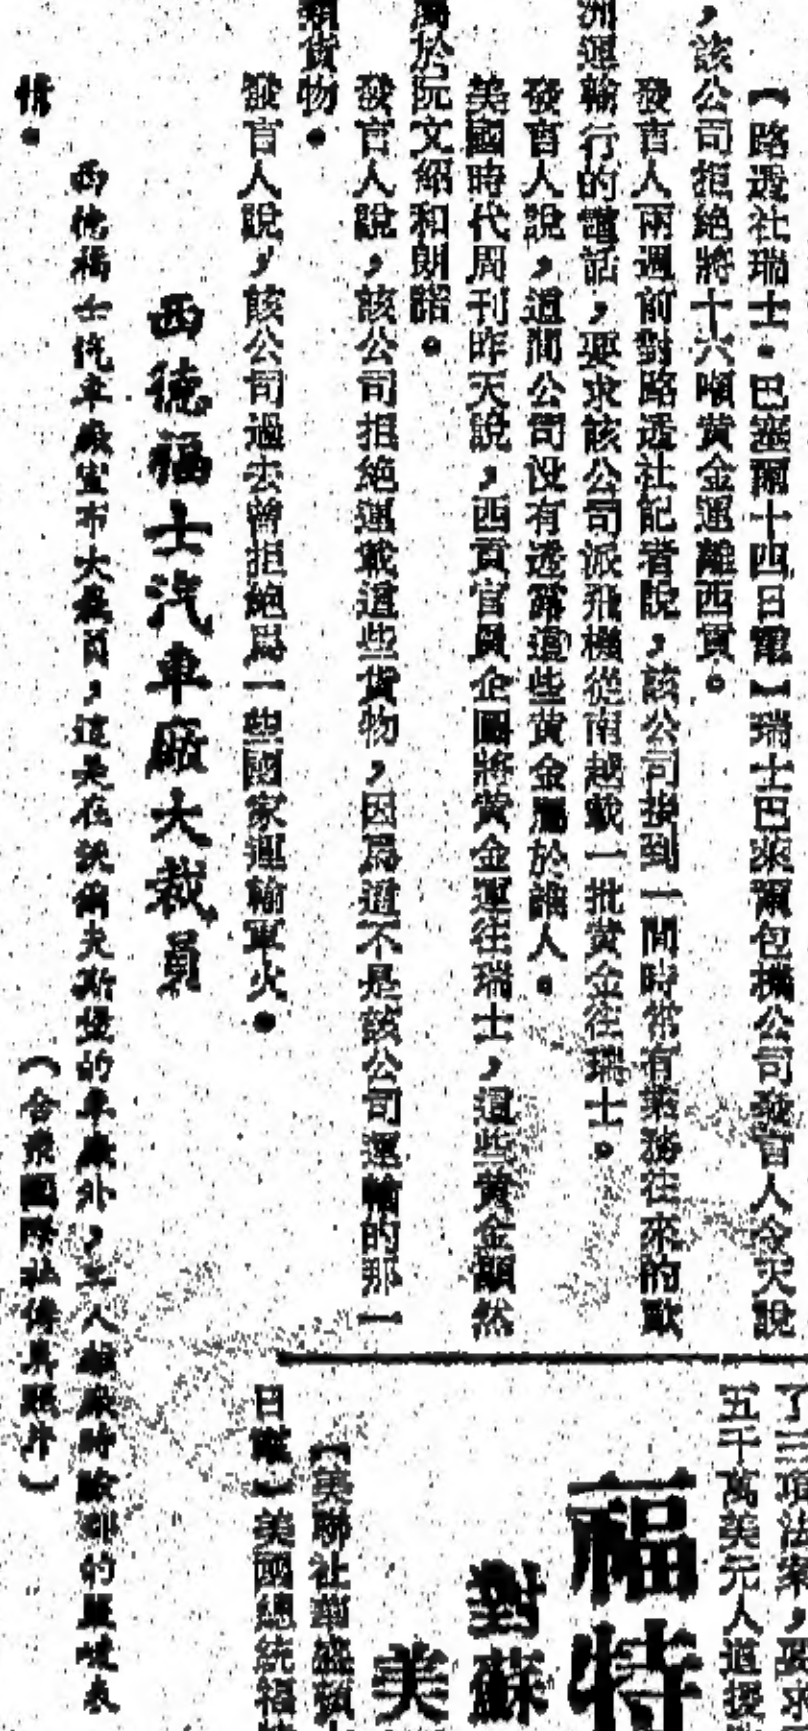 【路透社瑞士·巴塞爾十四日電】瑞士巴萊爾包機公司發言人今天說
，該公司拒絕將十六噸黃金運離西貢。
發言人兩週前對路透社記者說，該公司接到一間時常有業務往來的歐
洲運輸行的電話，要求該公司派飛機從南越載一批黃金往瑞士。
發言人說，這間公司没有透露這些黃金屬於誰人。
美國時代周刊昨天說，西貢官員企圖將黃金運往瑞士，這些黃金顯然
屬於阮文紹和朗諾。
發言人說，該公司拒絕運載這些貨物，因爲這不是該公司運輸的那一
類貨物。
發言人說，該公司過去曾拒絕爲一些國家運輸軍火。
西德福士汽車廠大裁員
西德福士汽車廠宣布大裁員，這是在沃爾夫斯堡的車廠外，工人離廠時臉部的嚴峻表
情。
（合衆國際社傳真照片）
了三項法案，要求
五千萬美元人道援
福特
對蘇
美
【美聯社華盛頓
日電】美國總統福特